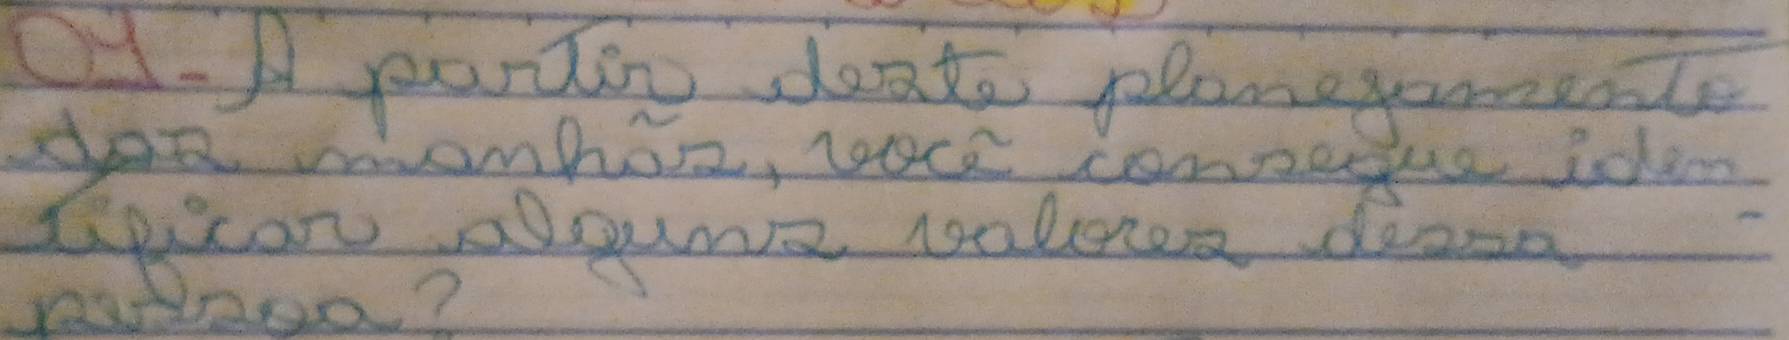 01- A partir deste planejamento
das manhãs, você consegue iden
tificar alguns valores dessa
pessoa?